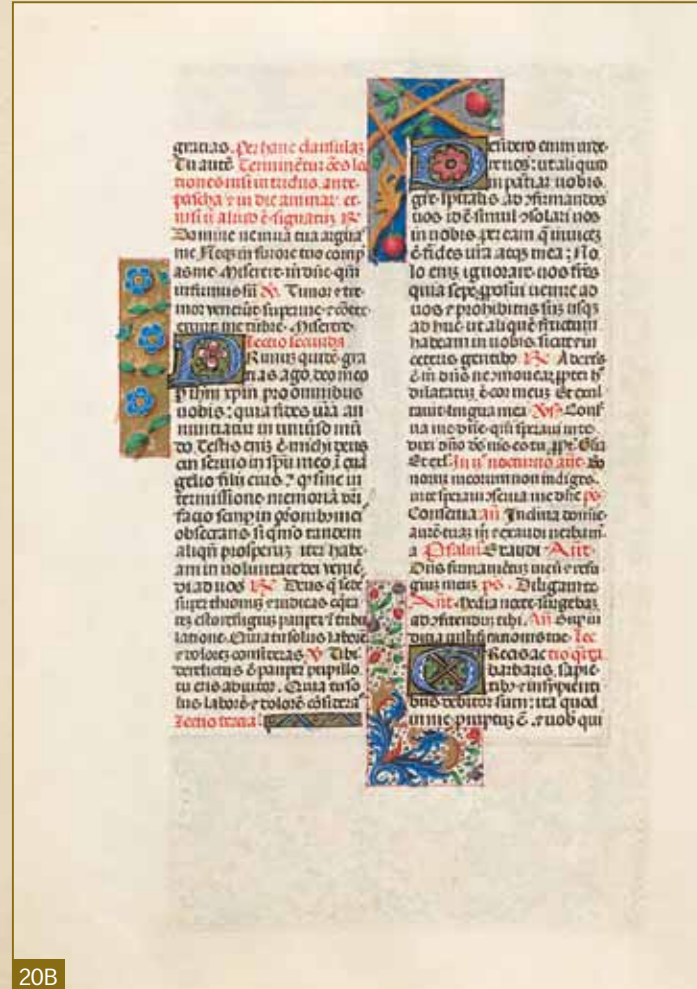 gratias. Per hanc clausulaz
Tu autē Terminētur ōes lc
tiones nisi in triduo ante
pascha et in die animar et
nisi ū aliud ē signatuz R
Domine ne in ira tua arguas
me Neqz in furore tuo corrip
as me Miserere m dñe qm̄
infirmus sū V Timor et tre
mor venerūt super me et cōtexe
erunt me tēbre Miserere
Lectio secunda
PRimuz quidē gra
tias ago deo meo
p ihm xpm pro omnibus
vobis : quia fides vrā an
nunciatur in universo mū
do Testis eniz ē michi deus
cui servio in spū meo ī euā
gelio filii eius q sine in
termissione memoriā vr̄i
facio semp in orōnibz meis
obsecrans si quo tandem
aliqn̄ prosperuz iter habe
am in voluntate dei veniē
di ad vos R Deus q sedes
super thronuz et iudicas equita
tez esto refugiuz pauper ī tribu
latione Quia tu solus laborē
et dolorez consideras V Tibi
derelictus ē pauper pupillo
tu eris adiutor Quia tu so
lus laborē et dolorē cōsideras
Lectio tercia
DEsidero enim vide
re vos : ut aliquid
impartiar vobis
gre spiritalis ad confirmandos
vos id ē simul consolari vos
in vobis per eam q invicez
ē fides vrā atqz mea : No
lo eniz ignorare vos frēs
quia sepe proposui venire ad
vos et prohibitus sūz usqz
ad huc ut aliquē fructum
habeam in vobis sicut et in
ceteris gentibz R A dextris
ē m dñs ne movear ppter h
dilatatuz ē cor meuz Et exul
tavit lingua mea V Conser
va me dñe qm̄ speravi in te
dixi dño ds ms es tu ppt Glia
Et exl In ii nocturno añt Bo
noruz meorum non indiges
in te speravi conserva me dñe ps
Conserva añ Inclina domine
aurē tuaz m et exaudi verba m
a Psalm Exaudi Añt
Dñs firmamētuz meū et refu
gium meuz ps Diligam te
Añt Media nocte surgebaz
ad confitenduz tibi Añ Sup iu
dicia iustificationis tue Lec
GRecis ac tio qrta
barbaris sapiē
tibz et insipienti
bus debitor sum : ita quod
in me pmptuz ē et vob qui
20B